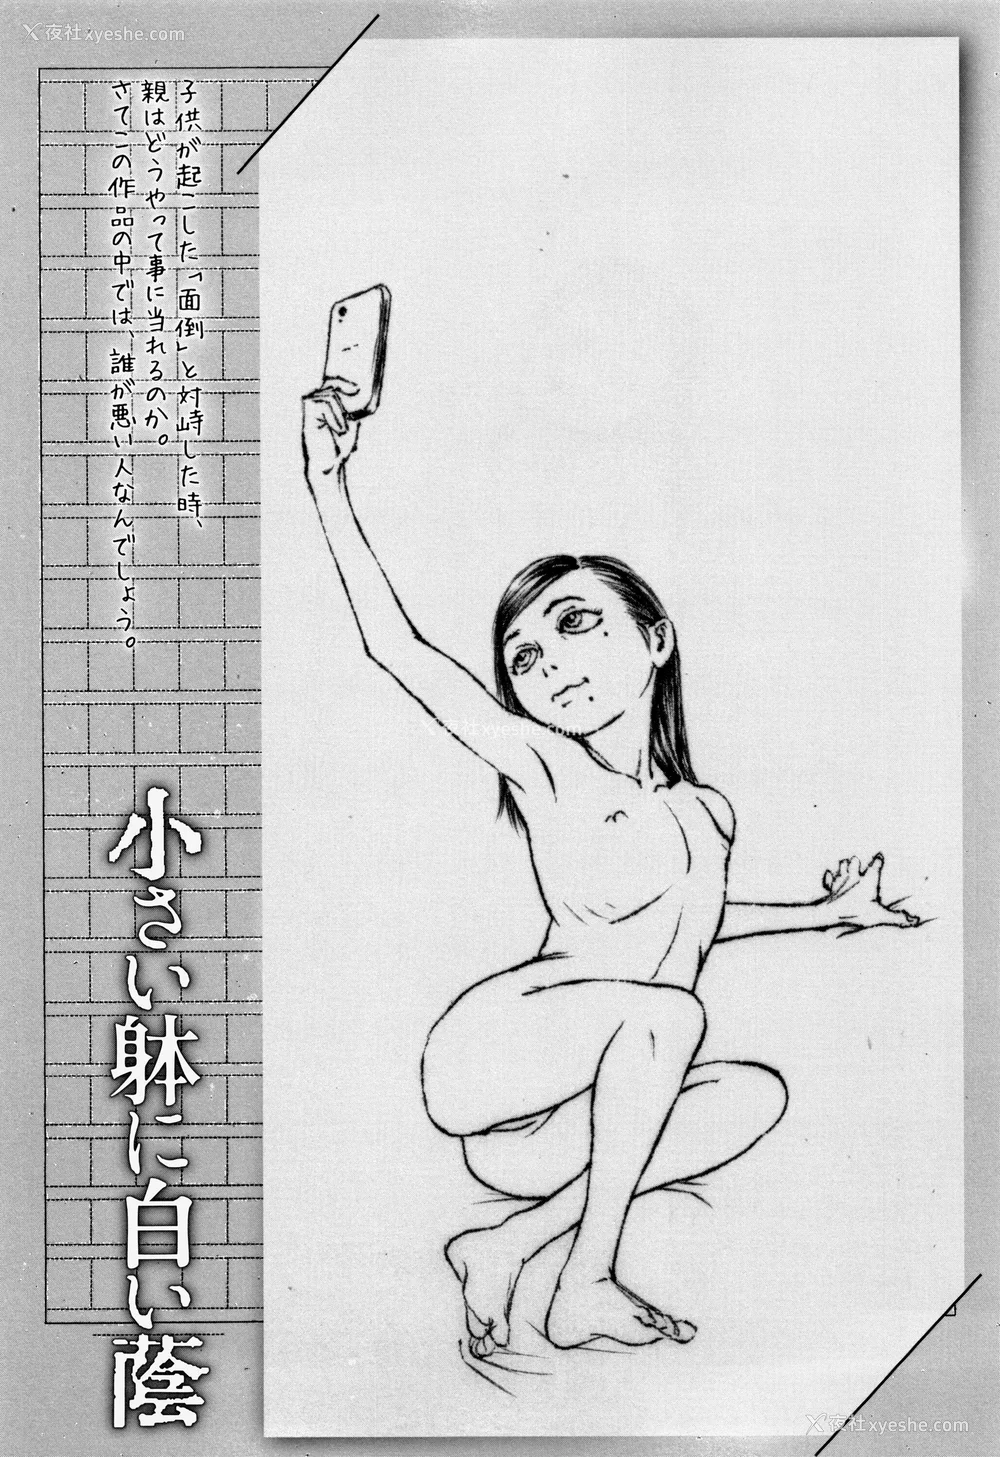 夜社xyeshe.com
子供が起こした「面倒」と対峙した時、
親はどうやって事に当れるのか。
さてこの作品の中では、誰が悪い人なんでしょう。
夜社xyeshe.com
小さい躰に白い蔭
夜社xyeshe.com